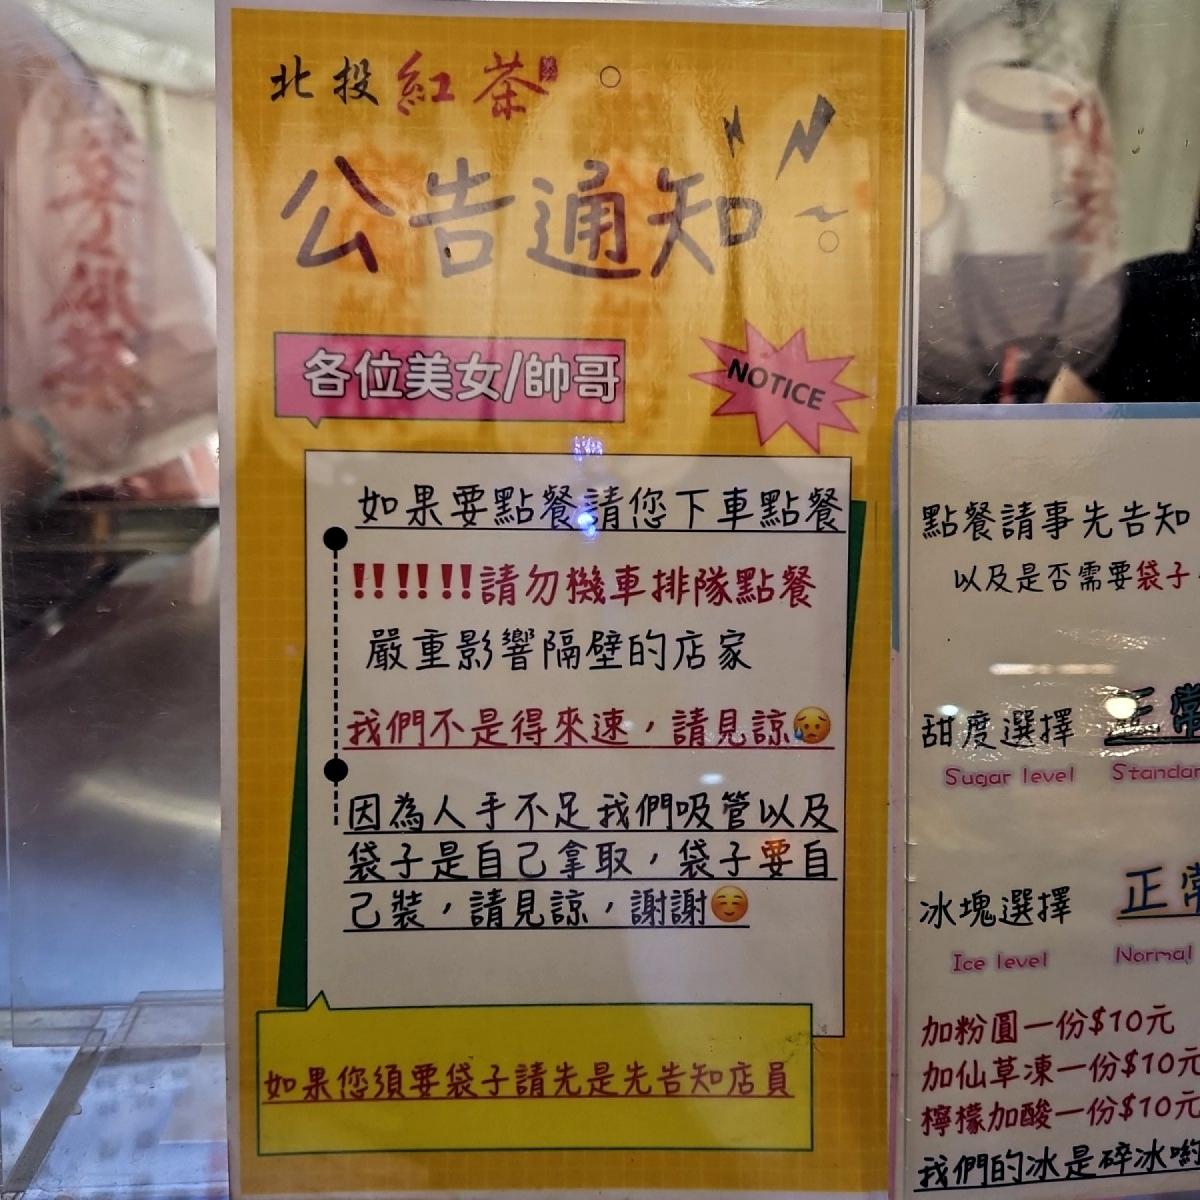 北投紅茶
公告通知
各位美女/帥哥
NOTICE
如果要點餐請您下車點餐
!!!!!!請勿機車排隊點餐
嚴重影響隔壁的店家
我們不是得來速，請見諒😥
因為人手不足我們吸管以及
袋子是自己拿取，袋子要自
己裝，請見諒，謝謝☺️
如果您須要袋子請先是先告知店員
點餐請事先告知
以及是否需要袋子
甜度選擇 正常
Sugar level Standar
冰塊選擇 正常
Ice level Normal
加粉圓一份$10元
加仙草凍一份$10元
檸檬加酸一份$10元
我們的冰是碎冰喲